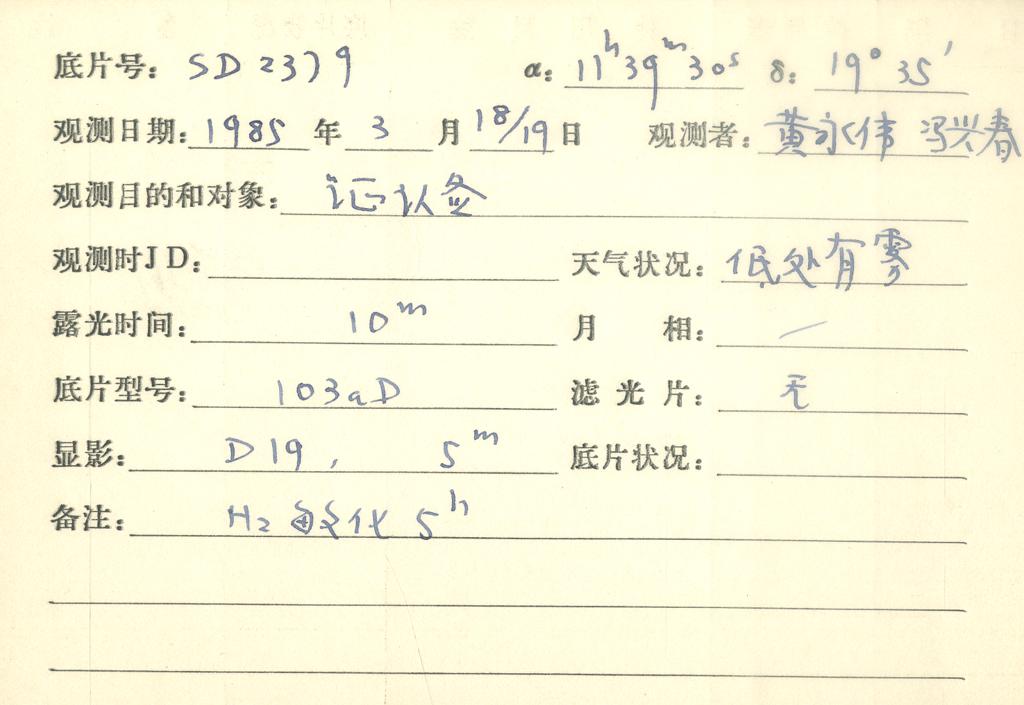 底片号: SD 2379 α: 11ʰ39ᵐ30ˢ δ: 19°35′
观测日期: 1985 年 3 月 18/19 日 观测者: 黄永伟 冯兴春
观测目的和对象: 证认签
观测时JD: 天气状况: 低处有雾
露光时间: 10ᵐ 月 相: —
底片型号: 103aD 滤光片: 无
显影: D19, 5ᵐ 底片状况:
备注: H₂ 敏化 5ʰ